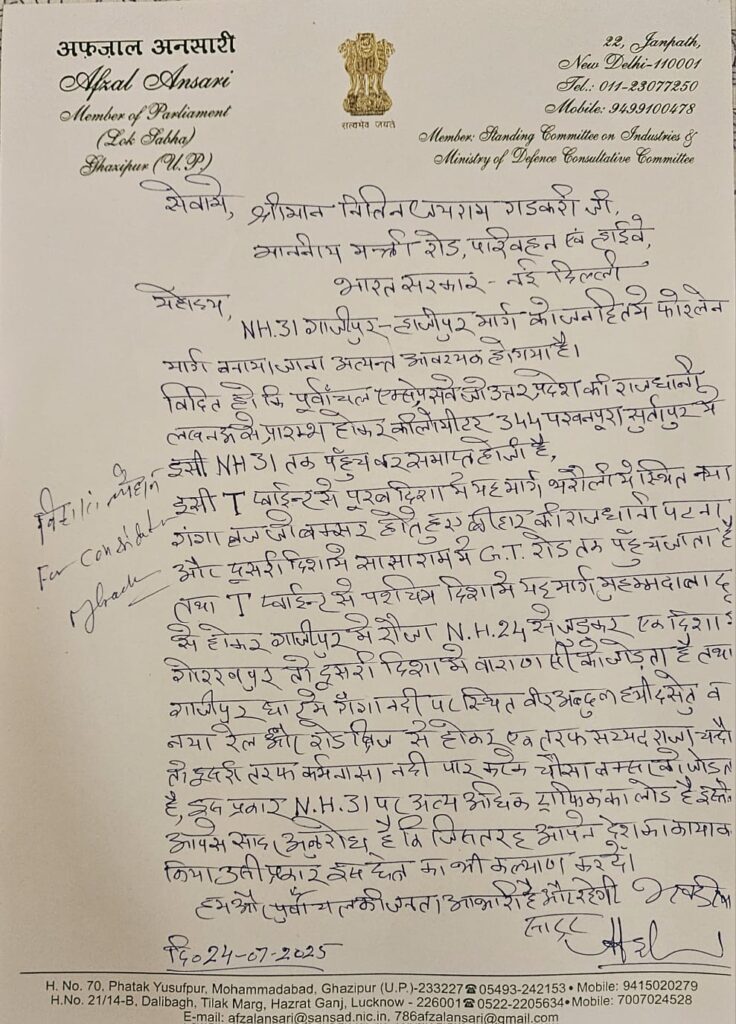 अफ़ज़ाल अनसारी
Afzal Ansari
Member of Parliament
(Lok Sabha)
Ghazipur (U.P.)
सत्यमेव जयते
22, Janpath,
New Delhi-110001
Tel.: 011-23077250
Mobile: 9499100478
Member: Standing Committee on Industries &
Ministry of Defence Consultative Committee
सेवामे, श्रीमान नितिन जयराम गडकरी जी,
माननीय मन्त्री रोड, परिवहन एवं हाईवे,
भारत सरकार - नई दिल्ली
महोदय,
NH.31 गाजीपुर-हाजीपुर मार्ग को जनहित मे फोरलेन
मार्ग बनाया जाना अत्यन्त आवश्यक हो गया है।
विदित हो कि पूर्वांचल एक्सप्रेसवे जो उत्तर प्रदेश की राजधानी
लखनऊ से प्रारम्भ होकर कीलोमीटर 344 पखनपूरा मे
इसी NH 31 तक पहुँच कर समाप्त होती है,
इसी T प्वाईन्ट से पूरब दिशा मे यह मार्ग भरौली मे स्थित नया
गंगा ब्रिज जो बक्सर होते हुए बीहार की राजधानी पटना
और दूसरी दिशा मे सासाराम मे G.T. रोड तक पहुँच जाता है
तथा T प्वाईन्ट से पश्चिम दिशा मे यह मार्ग मुहम्मदाबाद
से होकर गाजीपुर मे रौजा N.H.24 से जुड़कर एक दिशा मे
गोरखपुर तो दूसरी दिशा मे वाराणसी को जोड़ता है तथा
गाजीपुर मे गंगा नदी पर स्थित वीर अब्दुल हमीद सेतु व
नया रेल और रोड ब्रिज से होकर एक तरफ सय्यद राजा
तो दूसरी तरफ कर्मनासा नदी पार करके चौसा बक्सर को जोड़ता
है, इस प्रकार N.H.31 पर अत्यअधिक ट्राफिक का लोड है
आपसे सादर अनुरोध है कि जिस तरह आपने देश का कायाकल्प
किया उसी प्रकार इस क्षेत्र का भी कल्याण कर दें।
हम और पूर्वांचल की जनता आभारी है और रहेगी भवदीय
सादर
For Consideration
दि० 24-07-2025
H. No. 70, Phatak Yusufpur, Mohammadabad, Ghazipur (U.P.)-233227 ☎ 05493-242153 • Mobile: 9415020279
H.No. 21/14-B, Dalibagh, Tilak Marg, Hazrat Ganj, Lucknow - 226001 ☎ 0522-2205634 • Mobile: 7007024528
E-mail: afzalansari@sansad.nic.in, 786afzalansari@gmail.com